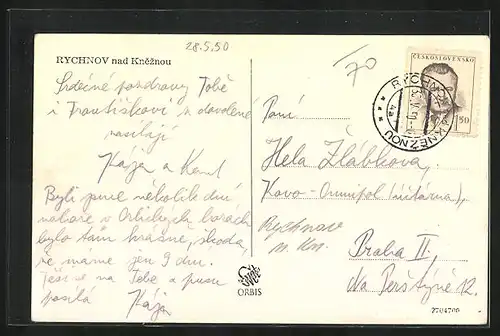 28.5.50
RYCHNOV nad Kněžnou
Srdečné pozdravy Tobě
i Františkovi z dovolené
zasílají
Kája a Karel
Byli jsme několik dní
nahoře v Orlických horách
bylo tam krásně, škoda,
že máme jen 9 dní.
Těší se na Tebe a pusu
posílá Kája
ORBIS
ČESKOSLOVENSKO
1.50
RYCHNOV n. KNĚŽNOU
4a
Paní
Hela Žlábková,
Kovo - Omnipol (učtárna),
Rychnov
n. Kn.
Praha II,
Na Perštýně 12.